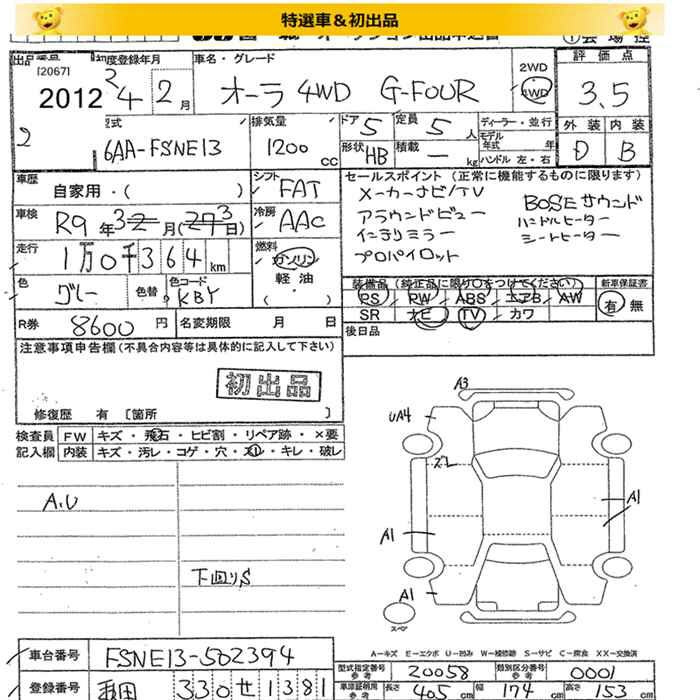 特選車＆初出品
出品番号
[2067]
2012
2
初度登録年月
4年2月
車名・グレード
オーラ 4WD G-FOUR
2WD
4WD
評価点
3.5
型式
6AA-FSNE13
排気量
1200 cc
ドア 5
定員 5 人
ディーラー・並行
モデル年式 年
外装 内装
形状 HB
積載 ー kg
ハンドル 左・右
D B
車歴
自家用・( )
シフト FAT
セールスポイント (正常に機能するものに限ります)
メーカーナビ/TV
BOSEサウンド
アラウンドビュー
ハンドルヒーター
インテリミラー
シートヒーター
プロパイロット
車検 R9年3月(27日)
冷房 AAC
走行 1万0千364km
燃料 ガソリン
軽油
・( )
色 グレー
色替
色コード KBY
装備品 (純正品に限り○をつけてください)
新車保証書
PS PW ABS エアB AW
有・無
SR ナビ TV カワ
R券 8600円
名変期限 月 日
後日品
注意事項申告欄 (不具合内容等は具体的に記入して下さい)
初出品
修復歴 有 [箇所 ]
検査員 FW キズ・飛石・ヒビ割・リペア跡・×要
記入欄 内装 キズ・汚レ・コゲ・穴・スレ・キレ・破レ
A.U
下回りS
A3
UA4
ズレ
A1
A1
A1
スペア
A-キズ E-エクボ U-凹み W-補修跡 S-サビ C-腐食 XX-交換済
車台番号 FSNE13-502394
型式指定番号 参考 20058
類別区分番号 参考 0001
登録番号 330 せ 1381
車庫証明用 参考 長さ 405 cm 幅 174 cm 高さ 153 cm